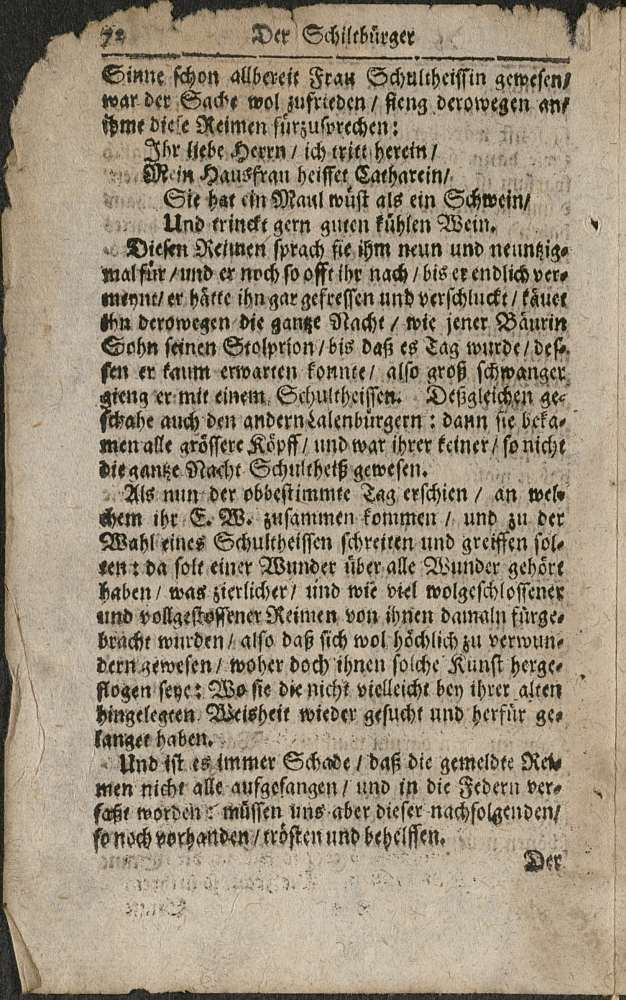 72 Der Schiltbürger
Sinne schon allbereit Frau Schultheissin gewesen/
war der Sache wol zufrieden / fieng derowegen an/
ihme diese Reimen fürzusprechen:
Ihr liebe Herrn / ich tritt herein /
Mein Hausfrau heisset Catharein/
Sie hat ein Maul wüst als ein Schwein/
Und trinckt gern guten kühlen Wein.
Diesen Reimen sprach sie ihm neun und neuntzig-
mal für / und er noch so offt ihr nach / bis er endlich ver-
meynt/ er hätte ihn gar gefressen und verschluckt / käuet
ihn derowegen die gantze Nacht / wie jener Bäurin
Sohn seinen Stolprion / bis daß es Tag wurde / des-
sen er kaum erwarten konnte / also groß schwanger
gieng er mit einem Schultheissen. Deßgleichen ge-
schahe auch den andern Lalenbürgern : dann sie beka-
men alle grössere Köpff / und war ihrer keiner / so nicht
die gantze Nacht Schultheiß gewesen.
Als nun der obbestimmte Tag erschien / an wel-
chem ihr E. W. zusammen kommen / und zu der
Wahl eines Schultheissen schreiten und greiffen sol-
ten : da solt einer Wunder über alle Wunder gehört
haben / was zierlicher / und wie viel wolgeschlossener
und vollgestossener Reimen von ihnen damaln fürge-
bracht wurden / also daß sich wol höchlich zu verwun-
dern gewesen / woher doch ihnen solche Kunst herge-
flogen seye : Wo sie die nicht vielleicht bey ihrer alten
hingelegten Weisheit wieder gesucht und herfür ge-
langet haben.
Und ist es immer Schade / daß die gemeldte Rei-
men nicht alle aufgefangen / und in die Federn ver-
faßt worden : müssen uns aber dieser nachfolgenden/
so noch vorhanden / trösten und behelffen.
Der